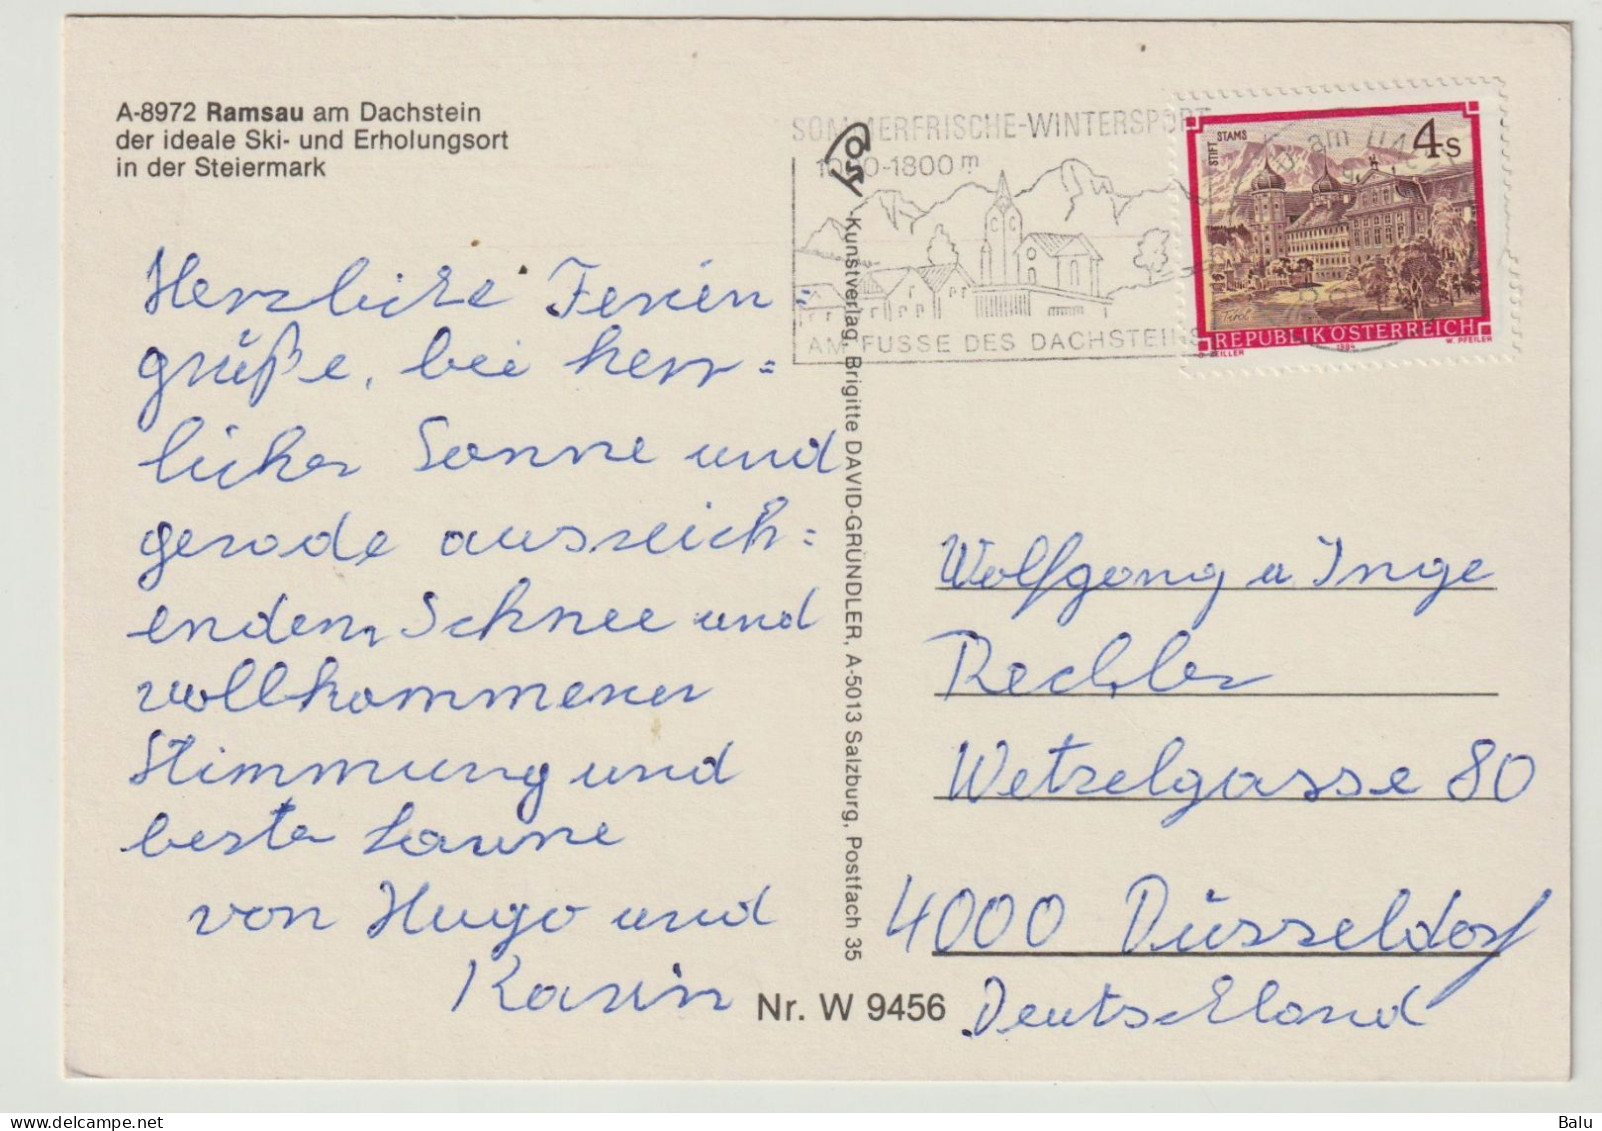 A-8972 Ramsau am Dachstein
der ideale Ski- und Erholungsort
in der Steiermark
SOMMERFRISCHE-WINTERSPORT
1000-1800 m
AM FUSSE DES DACHSTEINS
STIFT STAMS
4s
Tirol
REPUBLIK ÖSTERREICH
1984
W. PFEILER
Herzliche Ferien=
grüße, bei herr=
licher Sonne und
gerade ausreich=
endem Schnee und
vollkommener
Stimmung und
bester Laune
von Hugo und
Karin
Cosy
Kunstverlag, Brigitte DAVID-GRÜNDLER, A-5013 Salzburg, Postfach 35
Nr. W 9456
Wolfgang u Inge
Rechler
Wetzelgasse 80
4000 Düsseldorf
Deutschland
Balu